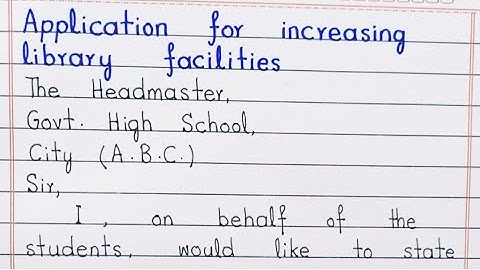 Application for increasing
library facilities
The Headmaster,
Govt. High School,
City (A.B.C.)
Sir,
I, on behalf of the
students, would like to state